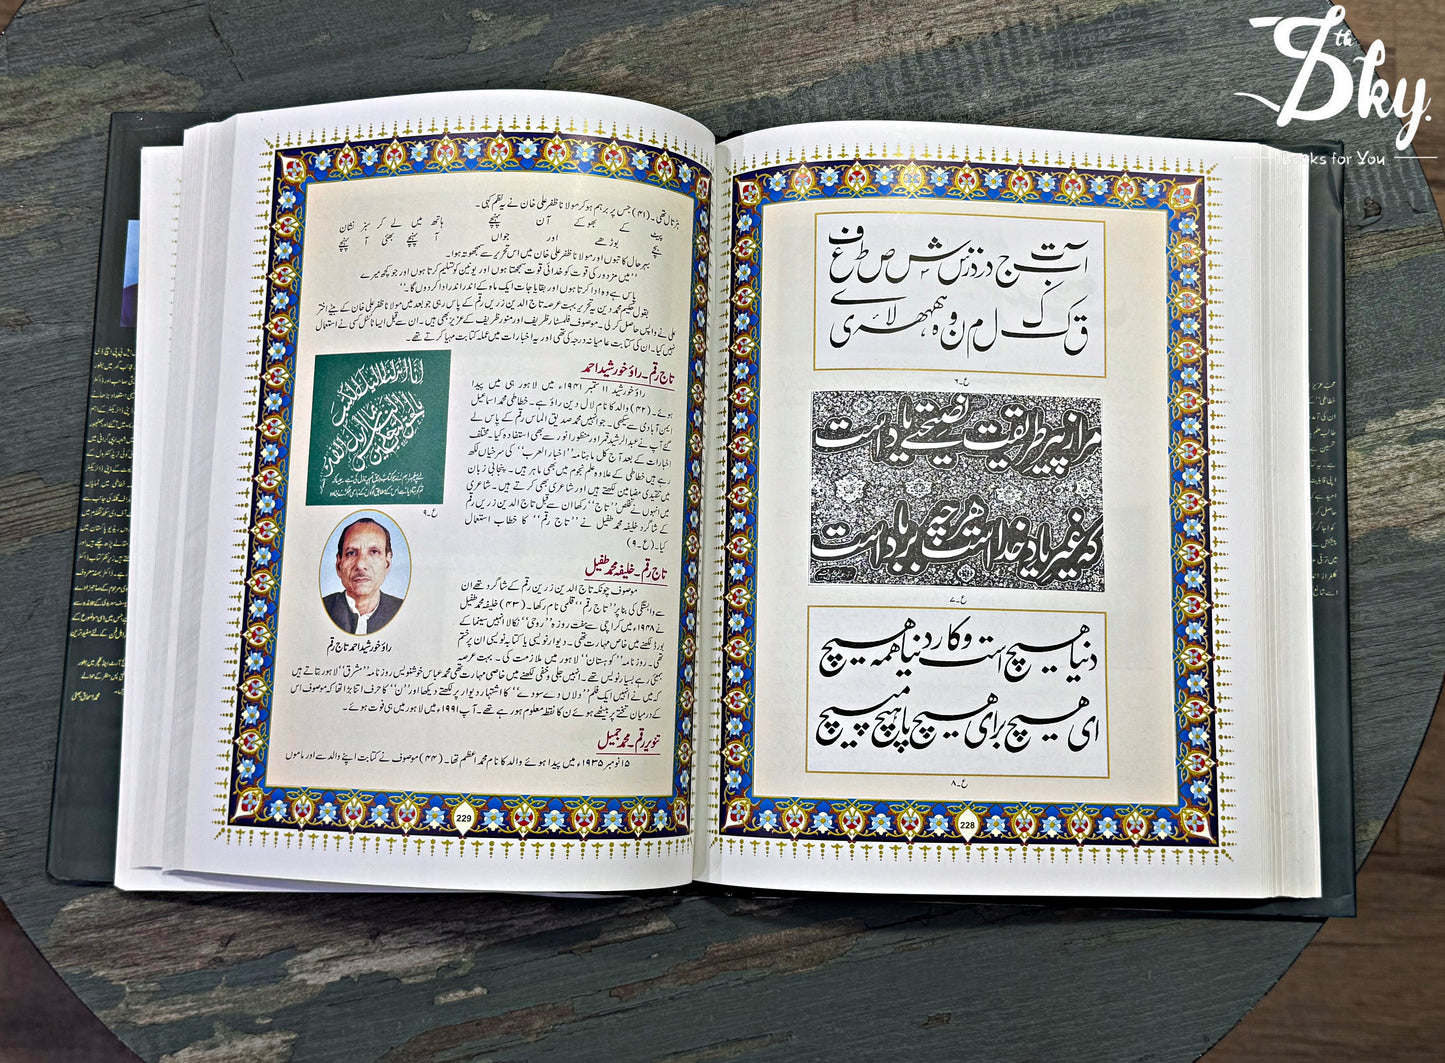 ا ب ت ج د ر ذ ز س ش ص ط ع ف
ق ک ل م ن و ہ ھ ء ی ے
ع۔۶
مرا ز پیر طریقت نصیحتے یاد است
کہ غیر یاد خدا ہر چہ است برباد است
ع۔۷
دنیا ہیچ است و کار دنیا ہمہ ہیچ
ای ہیچ برای ہیچ با ہیچ مپیچ
ع۔۸
228
ہڑتال تھی۔ (۴۱) جس پر برہم ہو کر مولانا ظفر علی خان نے یہ نظم کہی۔
پیٹ کے بھوکے آن پہنچے ہاتھ میں لے کر سبز نشان
بچے بوڑھے اور جواں آ پہنچے بھئی آ پہنچے
بہر حال کاتبوں اور مولانا ظفر علی خان میں اس تحریر سے سمجھوتہ ہوا۔
’’میں مزدور کی قوت کو خدائی قوت سمجھتا ہوں اور یونین کو تسلیم کرتا ہوں اور جو کچھ میرے
پاس ہے وہ ادا کرتا ہوں اور بقایا جات ایک ماہ کے اندر اندر ادا کر دوں گا۔‘‘
بقول حکیم محمد دین یہ تحریر بہت عرصہ تاج الدین زریں رقم کے پاس رہی جو بعد میں مولانا ظفر علی خان کے بیٹے اختر
علی نے واپس حاصل کر لی۔ موصوف فلمسٹار ظریف اور منور ظریف کے عزیز بھی ہیں۔ ان سے قبل ایسا ٹائٹل کسی نے استعمال
نہیں کیا۔ ان کی کتابت عامیانہ درجہ کی تھی اور یہ اخبارات میں عملہ کتابت مہیا کرتے تھے۔
تاج رقم۔ راؤ خورشید احمد
راؤ خورشید ۱۱ ستمبر ۱۹۴۱ء میں لاہور ہی میں پیدا
ہوئے۔ (۴۲) والد کا نام لال دین راؤ ہے۔ خطاطی محمد اسماعیل
ایمن آبادی سے سیکھی۔ جو انہیں محمد صدیق الماس رقم کے پاس لے
گئے آپ نے عبدالرشید قمر اور منظور انور سے بھی استفادہ کیا۔ مختلف
اخبارات کے بعد آج کل ماہنامہ ’’اخبار العرب‘‘ کی سرخیاں لکھ
رہے ہیں خطاطی کے علاوہ علم نجوم میں بھی ماہر ہیں۔ پنجابی زبان
میں تنقیدی مضامین لکھتے ہیں اور شاعری بھی کرتے ہیں۔ شاعری
میں انہوں نے تخلص ’’تاج‘‘ رکھا ان سے قبل تاج الدین زریں رقم
کے شاگرد خلیفہ محمد طفیل نے ’’تاج رقم‘‘ کا خطاب استعمال
کیا۔ (ع۔۹)
ع۔۹
راؤ خورشید احمد تاج رقم
تاج رقم۔ خلیفہ محمد طفیل
موصوف چونکہ تاج الدین زرین رقم کے شاگرد تھے ان
سے وابستگی کی بنا پر ’’تاج رقم‘‘ قلمی نام رکھا۔ (۴۳) خلیفہ محمد طفیل
نے ۱۹۴۸ء میں کراچی سے ہفت روزہ ’’رومی‘‘ نکالا انہیں سینما کے
بورڈ لکھنے میں خاص مہارت تھی۔ دیوار نویسی یا کتابہ نویسی ان پر ختم
تھی۔ روزنامہ ’’کوہستان‘‘ لاہور میں ملازمت کی۔ بہت عرصہ
بمبئی رہے بسیار نویس تھے۔ انہیں جلی و خفی لکھنے میں خاصی مہارت تھی محمد عباس خوشنویس روزنامہ ’’مشرق‘‘ لاہور بتاتے ہیں
کہ میں نے انہیں ایک فلم ’’دلاں دے سودے‘‘ کا اشتہار دیوار پر لکھتے دیکھا اور ’’ن‘‘ کا حرف اتنا بڑا تھا کہ موصوف اس
کے درمیان تختے پر بیٹھے ہوئے ن کا نقطہ معلوم ہو رہے تھے۔ آپ ۱۹۹۱ء میں لاہور میں ہی فوت ہوئے۔
تنویر رقم۔ محمد جمیل
۱۵ نومبر ۱۹۳۵ء میں پیدا ہوئے والد کا نام محمد اعظم تھا۔ (۴۴) موصوف نے کتابت اپنے والد سے اور ماموں
229
the Sky.
Books for You